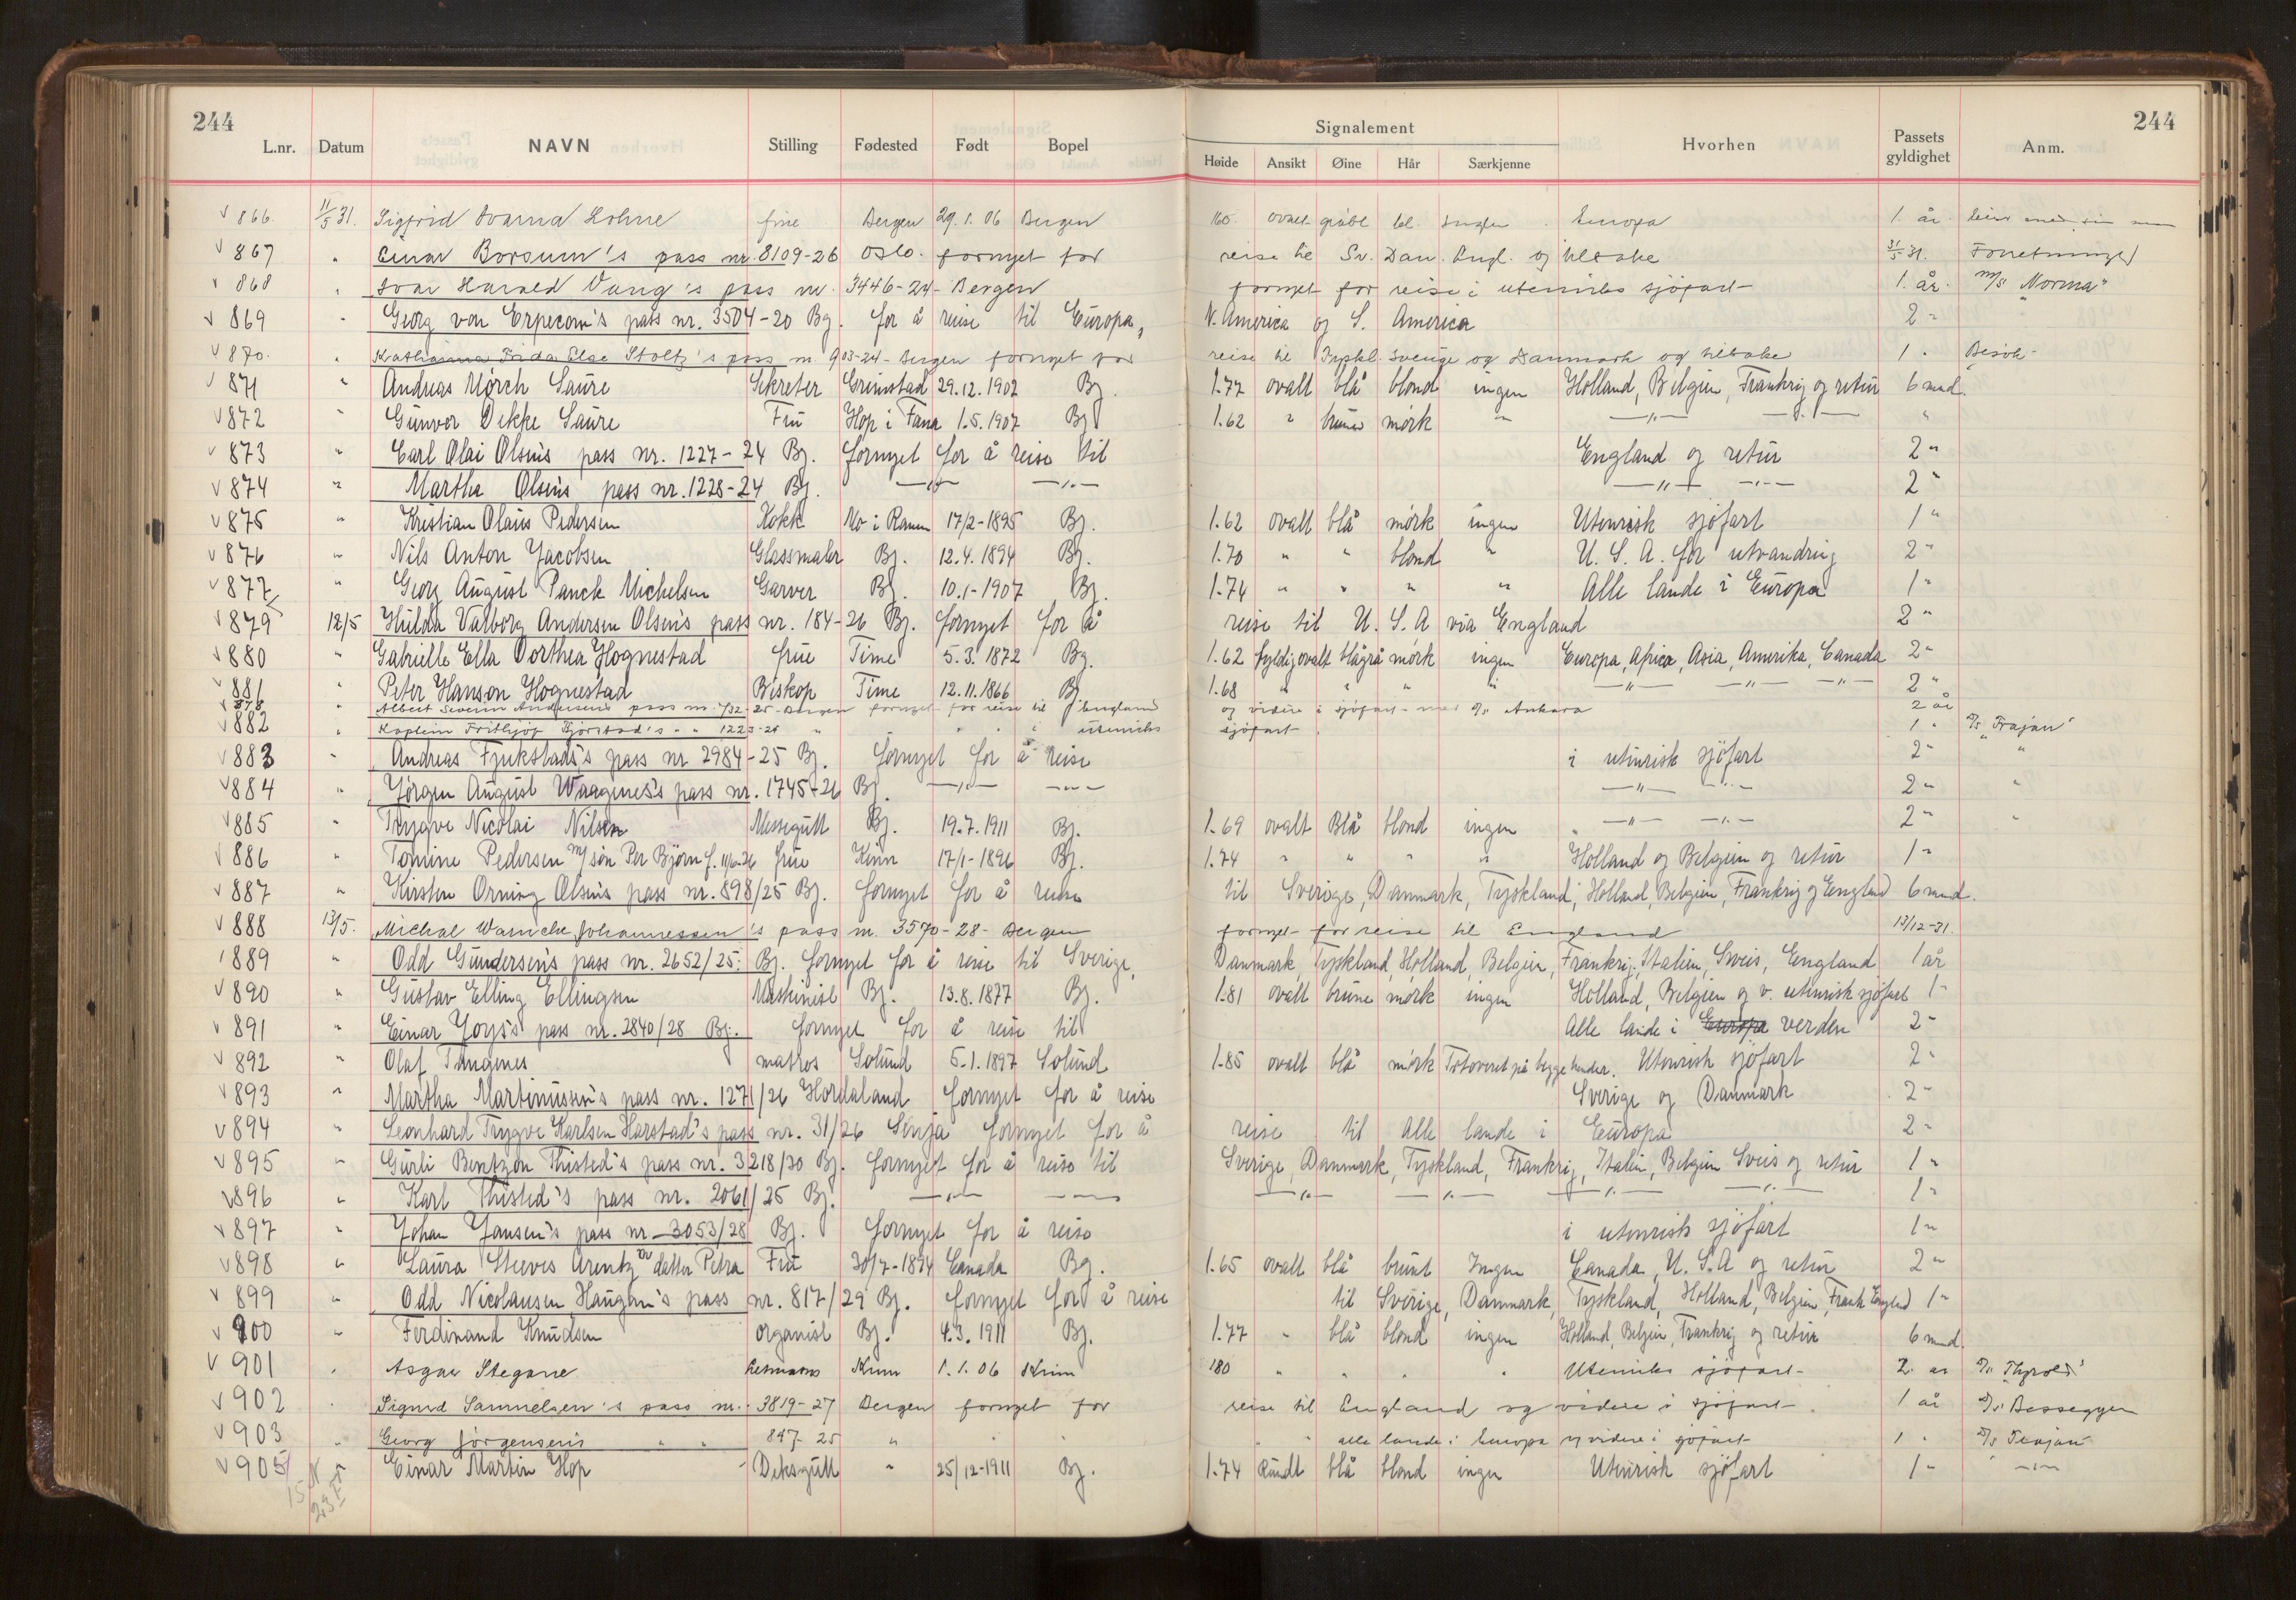 244 244
Signalement
L.nr. Datum NAVN Stilling Fødested Født Bopel Høide Ansikt Øine Hår Særkjenne Hvorhen Passets gyldighet Anm.
√ 866. 11/5 31. Sigfrid frue Bergen 29.1.06 Bergen 160. ovalt gråbl bl. Ingen Europa 1 år.
√ 867 " Einar Borsum's pass nr. 8109-26 Oslo. fornyet for reise til Sv. Dan. Engl. og tilbake 31/5-31. Forretninger
√ 868 " Ivar Harald Vang's pass nr. 3446-24- Bergen fornyet for reise i utenriks sjöfart 1. år. m/s "Norma"
√ 869 " Georg von Erpecom's pass nr. 3504-20 Bg. for å reise til Europa, N. America og S. America 2 "
√ 870. " Katharina Frida Else Stoltz's pass nr. 903-24- Bergen fornyet for reise til Tyskl. Sverige og Danmark og tilbake 1 " Besøk-
√ 871 " Andreas Mørch Saure Sekretær Grimstad 29.12.1902 Bg. 1.77 ovalt blå blond ingen Holland, Belgien, Frankrig og retur 6 mnd.
√ 872 " Gunvor Dekke Saure Fru Hop i Fana 1.5.1907 Bg 1.62 " brune mörk " —"— —"— "
√ 873 " Carl Olai Olsens pass nr. 1227-24 Bg. fornyet for å reise til England og retur 2 "
√ 874 " Martha Olsens pass nr. 1228-24 Bg. —"— —"— —"— —"— 2 "
√ 875 " Kristian Olaus Pedersen Kokk Mo i Ranen 17/2-1895 Bg. 1.62 ovalt blå mörk ingen Utenrisk sjöfart 1 "
√ 876 " Nils Anton Jacobsen Glassmaler Bg. 12.4.1894 Bg. 1.70 " " blond " U.S.A. for utvandring 2 "
√ 877 " Georg August Panck Michelsen Garver Bg. 10.1-1907 Bg. 1.74 " " " " Alle lande i Europa 1 "
√ 879 12/5 Hulda Valborg Andersen Olsens pass nr. 184-26 Bg. fornyet for å reise til U.S.A via England 2 "
√ 880 " Gabrielle Ella Dorthea Hognestad frue Time 5.3.1872 Bg. 1.62 fyldig ovalt blågrå mörk ingen Europa, Africa, Asia, Amerika, Canada 2 "
√ 881 " Peter Hanson Hognestad Biskop Time 12.11.1866 Bg. 1.68 " " " " —"— —"— —"— 2 "
√ 878 " Albert Severin Andersens pass nr. 732-25- Bergen fornyet for reise til England og videre i sjöfart med d/s Ankara 2 år
√ 882 " Kaptein Frithjof Fjörstad's " " 1223-26 " " " " i utenriks sjöfart 1 " d/s "Trajan"
√ 883 " Andreas Fjukstads's pass nr 2984-25 Bg. fornyet for å reise i utenrisk sjöfart 2 " "
√ 884 " Jörgen August Waagenes's pass nr. 1745-26 Bg. —"— —"— —"— —"— 2 " "
√ 885 " Trygve Nicolai Nilsen Messegutt Bg. 19.7.1911 Bg. 1.69 ovalt Blå blond ingen —"— —"— 2 " "
√ 886 " Tomine Pedersen m/sön Per Björn f. 11/6-26 frue Kinn 17/1-1896 Bg. 1.74 " " " " Holland og Belgien og retur 1 "
√ 887 " Kirsten Orning Olsens pass nr. 898/25 Bg. fornyet for å reise til Sverige, Danmark, Tyskland, Holland, Belgien, Frankrig og England 6 mnd.
√ 888 13/5. Michal Wernicke Johannessen's pass nr. 3570-28- Bergen fornyet for reise til England 13/12-31.
√ 889 " Odd Gundersen's pass nr. 2652/25. Bg. fornyet for å reise til Sverige, Danmark, Tyskland, Holland, Belgien, Frankrig, Italien, Sveis, England 1 år
√ 890 " Gustav Elling Ellingsen Maskinist Bg. 13.8.1877 Bg. 1.81 ovalt brune mörk ingen Holland, Belgien og v. utenrisk sjöfart 1 "
√ 891 " Einar Joys's pass nr. 2840/28 Bg. fornyet for å reise til Alle lande i Europa verden 2 "
√ 892 " Olaf Tangenes matros Solund 5.1.1897 Solund 1.85 ovalt blå mörk Tatoveret på begge hender. Utenrisk sjöfart 2 "
√ 893 " Martha Martinussen's pass nr. 1271/26 Hordaland fornyet for å reise Sverige og Danmark 2 "
√ 894 " Leonhard Trygve Karlsen Harstad's pass nr. 31/26 Senja fornyet for å reise til alle lande i Europa 2 "
√ 895 " Gurli Bentzon Thisted's pass nr. 3218/30 Bg. fornyet for å reise til Sverige, Danmark, Tyskland, Frankrig, Italien, Belgien Sveis og retur 1 "
√ 896 " Karl Thisted's pass nr. 2061/25 Bg. —"— —"— —"— —"— —"— —"— 1 "
√ 897 " Johan Jansen's pass nr. 3053/28 Bg. fornyet for å reise i utenrisk sjöfart 1 "
√ 898 " Laura Steeves Arentz og datter Petra Fru 30/7-1894 Canada Bg. 1.65 ovalt blå brunt Ingen Canada, U.S.A og retur 2 "
√ 899 " Odd Nicolausen Haugan's pass nr. 817/29 Bg. fornyet for å reise til Sverige, Danmark, Tyskland, Holland, Belgien, Frank England 1 "
√ 900 " Ferdinand Knudsen organist Bg. 4.3.1911 Bg. 1.77 " blå blond ingen Holland, Belgien, Frankrig og retur 6 mnd.
√ 901 " Asgar Stegane Kinn 1.1.06 Kinn 180 " " " " Utenriks sjöfart 2 år
√ 902 " Sigurd Samuelsen's pass nr. 3819-27 Bergen fornyet for reise til England og videre i sjöfart 1 år d/s Besseggen
√ 903 " Georg Jörgensens " " 847-25 " " " " " alle lande i Europa og videre i sjöfart 1 " d/s Trajan
√ 905 " Einar Martin Hop Dekksgutt " 25/12-1911 Bg. 1.74 Rundt blå blond ingen Utenrisk sjöfart 1 " —"—
15 N
23 F